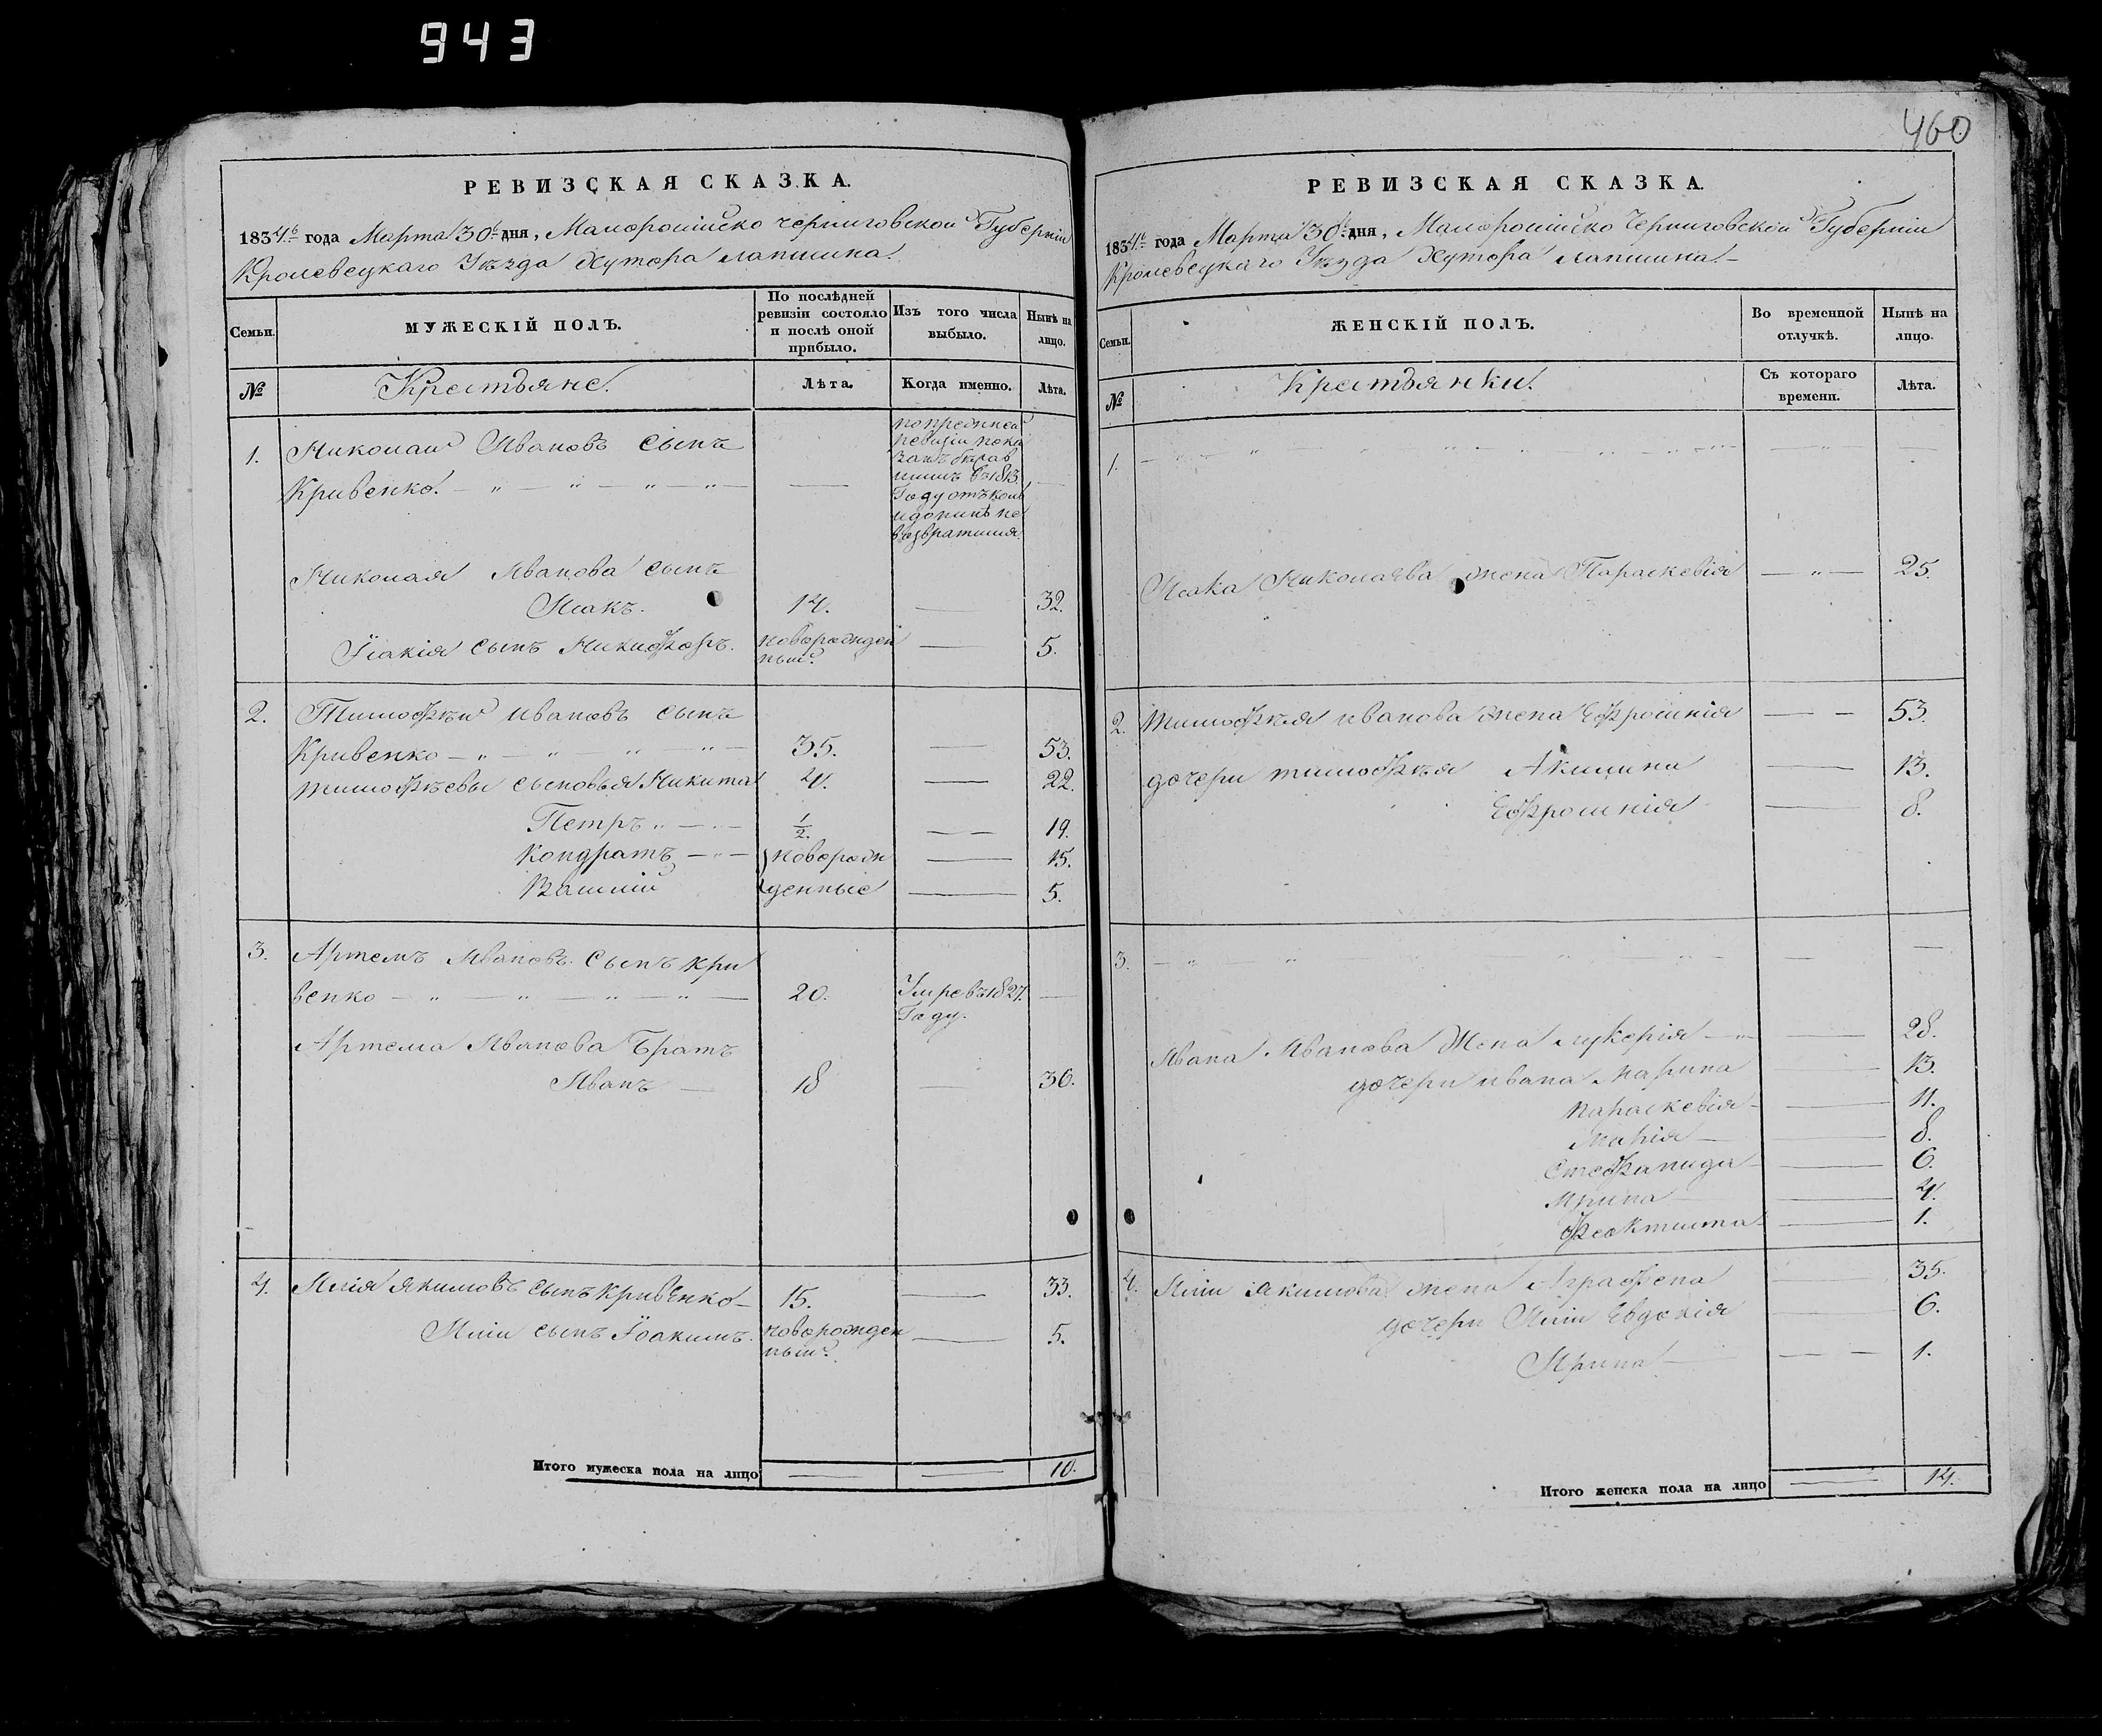 943
РЕВИЗСКАЯ СКАЗКА.
1834го года Марта 30го дня, Малороссійско Черниговской Губерніи
Кролевецкаго Уѣзда Хутора Лапшина.
Семьи.
МУЖЕСКІЙ ПОЛЪ.
По послѣдней ревизіи состояло и послѣ оной прибыло.
Изъ того числа выбыло.
Нынѣ на лицо.
№
Крестьяне.
Лѣта.
Когда именно.
Лѣта.
1. Николай Ивановъ сынъ
Кривенко. — „ — „ — „ — „ — —
по прежней
ревизіи пока
занъ бѣжав
шимъ въ 1813
Году отъ коль
и до нинѣ не
возвратился.
—
Николая Иванова сынъ
Исакъ. 14. — 32.
Ісакія сынъ Никифоръ. новорожден
ный. — 5.
2. Тимофѣй ивановъ сынъ
Кривенко — „ — „ — „ — „ — 35. — 53.
тимофѣевы сыновья Никита 4. — 22.
Петръ „ — „ — 1/2. — — 19.
Кондратъ — „ — новорож — 15.
Василій денные — 5.
3. Артемъ Ивановъ сынъ Кри
венко — „ — „ — „ — „ — 20. Умре въ 1827 —
Году.
Артема Иванова Братъ
Иванъ — 18 — 36.
4. Илія якимовъ сынъ Кривенко — 15. — 33.
Иліи сынъ Іоакимъ. новорожден
ный. — 5.
Итого мужеска пола на лицо — — 10.
460
РЕВИЗСКАЯ СКАЗКА.
1834го года Марта 30го дня, Малороссійско Черниговской Губерніи
Кролевецкаго Уѣзда Хутора Лапшина. —
Семьи.
ЖЕНСКІЙ ПОЛЪ.
Во временной отлучкѣ.
Нынѣ на лицо.
№
Крестьянки.
Съ котораго времени.
Лѣта.
1. — „ — „ — „ — „ — „ — „ — —
Исака Николаева жена Параскевія — „ — 25.
2. тимофѣя иванова жена Ефросинія — — 53.
дочери тимофѣя Акилина — 13.
Ефросинія — 8.
3. — „ „ — „ — „ — „ — — —
Ивана Иванова Жена лукерія — „ — 28.
дочери ивана Марина — 13.
параскевія — — 11.
марія — — 8.
Стефанида — — 6.
Ирина — — 4.
Феоктиста — — 1.
4. Иліи якимова жена Аграфена — 35.
дочери Иліи Евдокія — 6.
Ирина — — — 1.
Итого женска пола на лицо — 14.